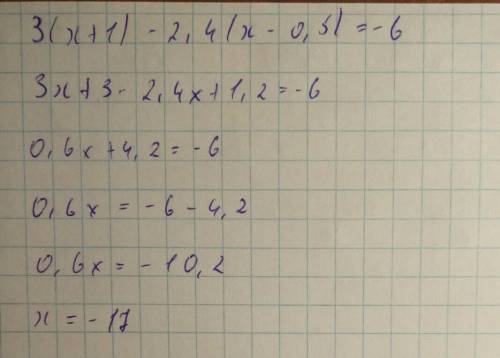 3(x+1) - 2,4(x - 0,5) = -6
3x+3 - 2,4x+1,2 = -6
0,6x+4,2 = -6
0,6x = -6-4,2
0,6x = -10,2
x = -17